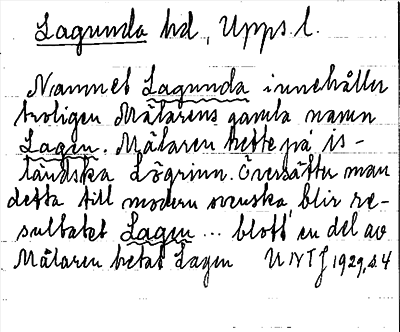 Lagunda hd, Upps. l.
Namnet Lagunda innehåller
troligen Mälarens gamla namn
Lagen. Mälaren hette på is-
ländska Lögrinn. Översätter man
detta till modern svenska, blir re-
sultatet Lagen ... blott en del av
Mälaren hetat Lagen UNTJ 1929, s. 4